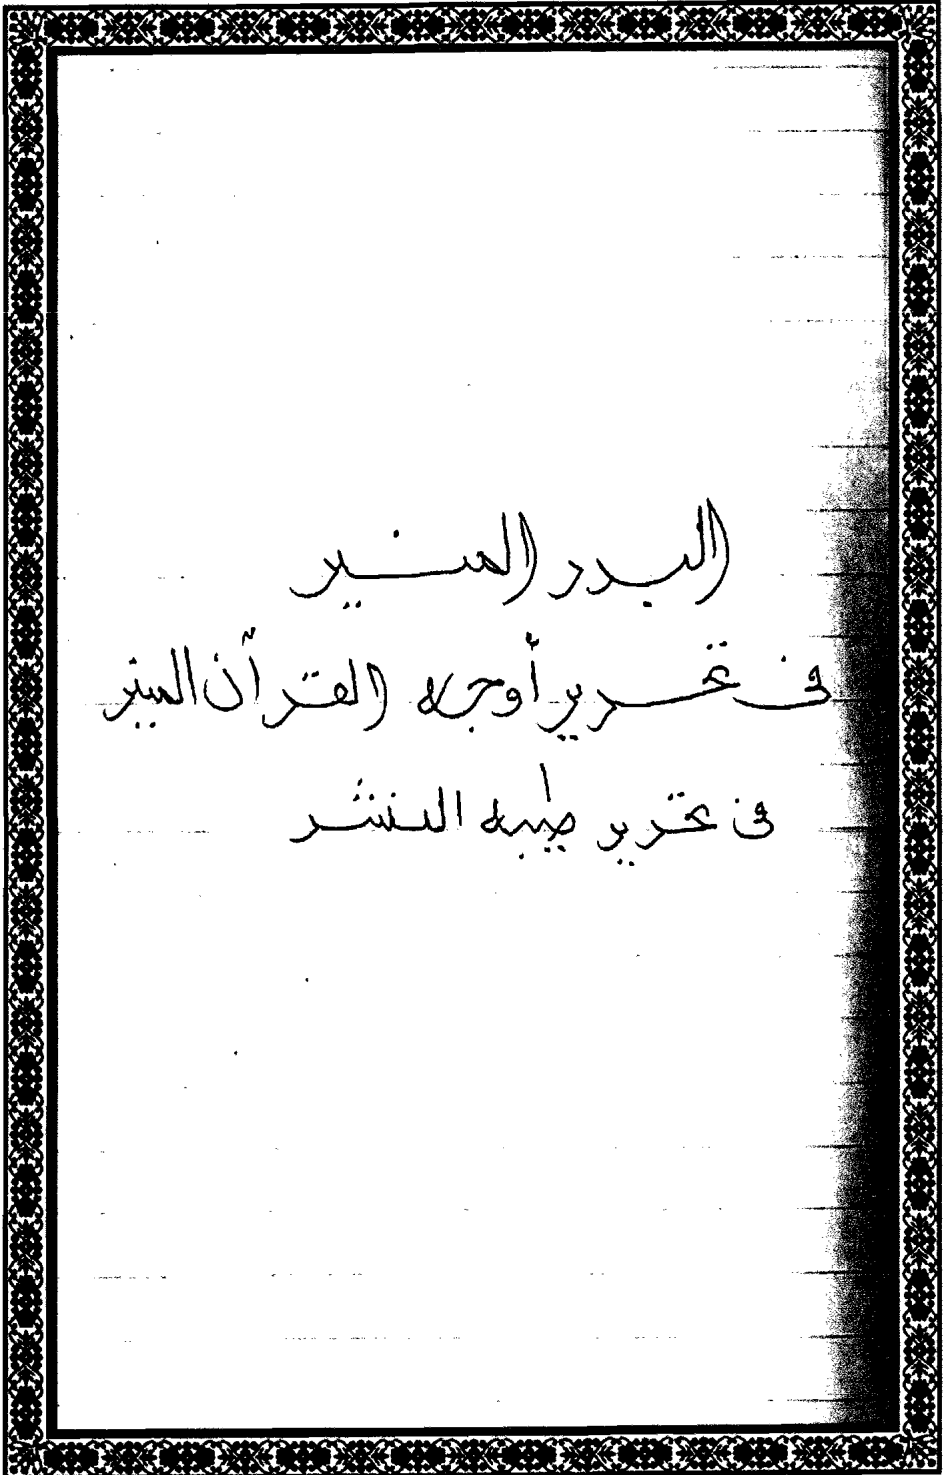 البدر المنير
فى تحرير أوجه القرآن المنير
فى تحرير طيبه النشر